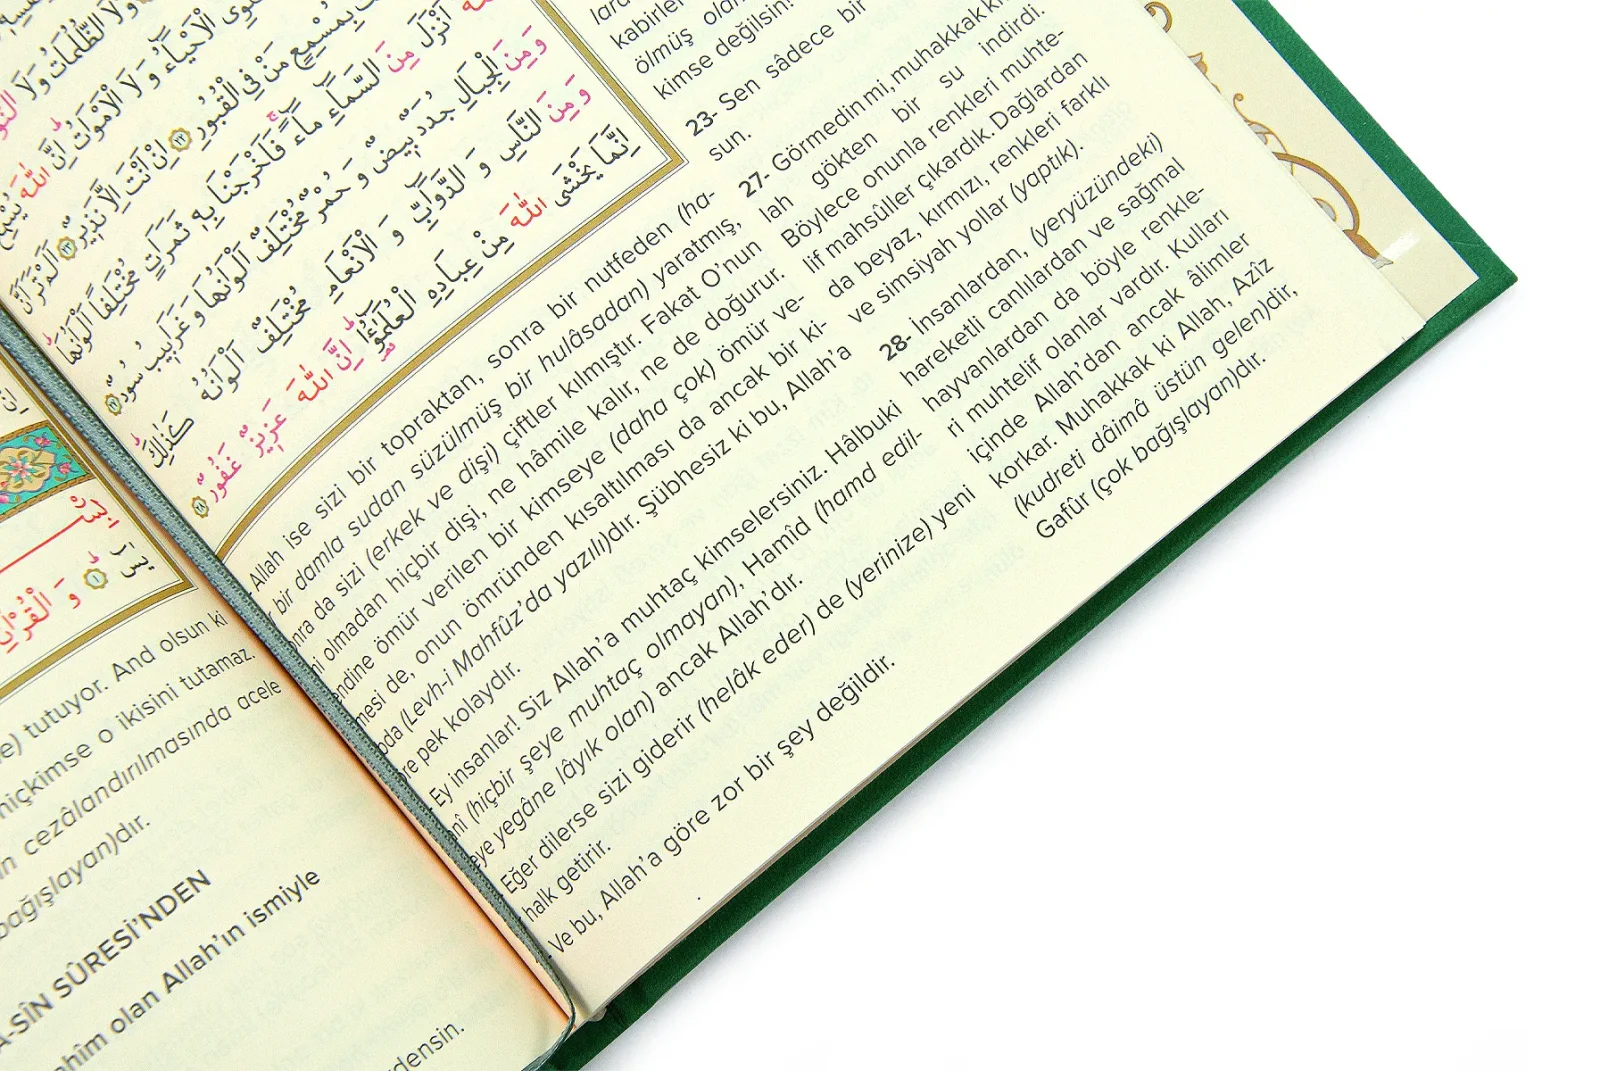 وَلَا الظُّلُمَاتُ وَلَا النُّورُ
الْاَحْيَٓاءُ وَلَا الْاَمْوَاتُ اِنَّ اللّٰهَ يُسْمِعُ
بِمُسْمِعٍ مَنْ فِي الْقُبُورِ ﴿٢٢﴾ اِنْ اَنْتَ اِلَّا نَذٖيرٌ ﴿٢٣﴾
اَلَمْ تَرَ اَنَّ
اللّٰهَ اَنْزَلَ مِنَ السَّمَٓاءِ مَٓاءً فَاَخْرَجْنَا بِهٖ ثَمَرَاتٍ مُخْتَلِفًا اَلْوَانُهَا
وَمِنَ الْجِبَالِ جُدَدٌ بٖيضٌ وَحُمْرٌ مُخْتَلِفٌ اَلْوَانُهَا وَغَرَابٖيبُ سُودٌ ﴿٢٧﴾
وَمِنَ النَّاسِ وَالدَّوَٓابِّ وَالْاَنْعَامِ مُخْتَلِفٌ اَلْوَانُهُ كَذٰلِكَ
اِنَّمَا يَخْشَى اللّٰهَ مِنْ عِبَادِهِ الْعُلَمٰٓؤُا اِنَّ اللّٰهَ عَزٖيزٌ غَفُورٌ ﴿٢٨﴾
Allah ise sizi bir topraktan, sonra bir nutfeden (ha-
bir damla sudan süzülmüş bir hulâsadan) yaratmış,
da sizi (erkek ve dişi) çiftler kılmıştır. Fakat O'nun
olmadan hiçbir dişi, ne hâmile kalır, ne de doğurur.
ömür verilen bir kimseye (daha çok) ömür ve-
de, onun ömründen kısaltılması da ancak bir ki-
(Levh-i Mahfûz'da yazılı)dır. Şübhesiz ki bu, Allah'a
pek kolaydır.
Ey insanlar! Siz Allah'a muhtaç kimselersiniz. Hâlbuki
(hiçbir şeye muhtaç olmayan), Hamîd (hamd edil-
yegâne lâyık olan) ancak Allah'dır.
Eğer dilerse sizi giderir (helâk eder) de (yerinize) yeni
halk getirir.
Ve bu, Allah'a göre zor bir şey değildir.
kabirler
ölmüş olan
kimse değilsin!
23- Sen sâdece bir
sun.
27- Görmedin mi, muhakkak ki
lah gökten bir su indirdi.
Böylece onunla renkleri muhte-
lif mahsûller çıkardık. Dağlardan
da beyaz, kırmızı, renkleri farklı
ve simsiyah yollar (yaptık).
28- İnsanlardan, (yeryüzündeki)
hareketli canlılardan ve sağmal
hayvanlardan da böyle renkle-
ri muhtelif olanlar vardır. Kulları
içinde Allah'dan ancak âlimler
korkar. Muhakkak ki Allah, Azîz
(kudreti dâimâ üstün gelen)dir,
Gafûr (çok bağışlayan)dır.
وَالْقُرْاٰنِ
tutuyor. And olsun ki
hiçkimse o ikisini tutamaz.
cezâlandırılmasında acele
bağışlayan)dır.
SÎN SÛRESİ'NDEN
olan Allah'ın ismiyle